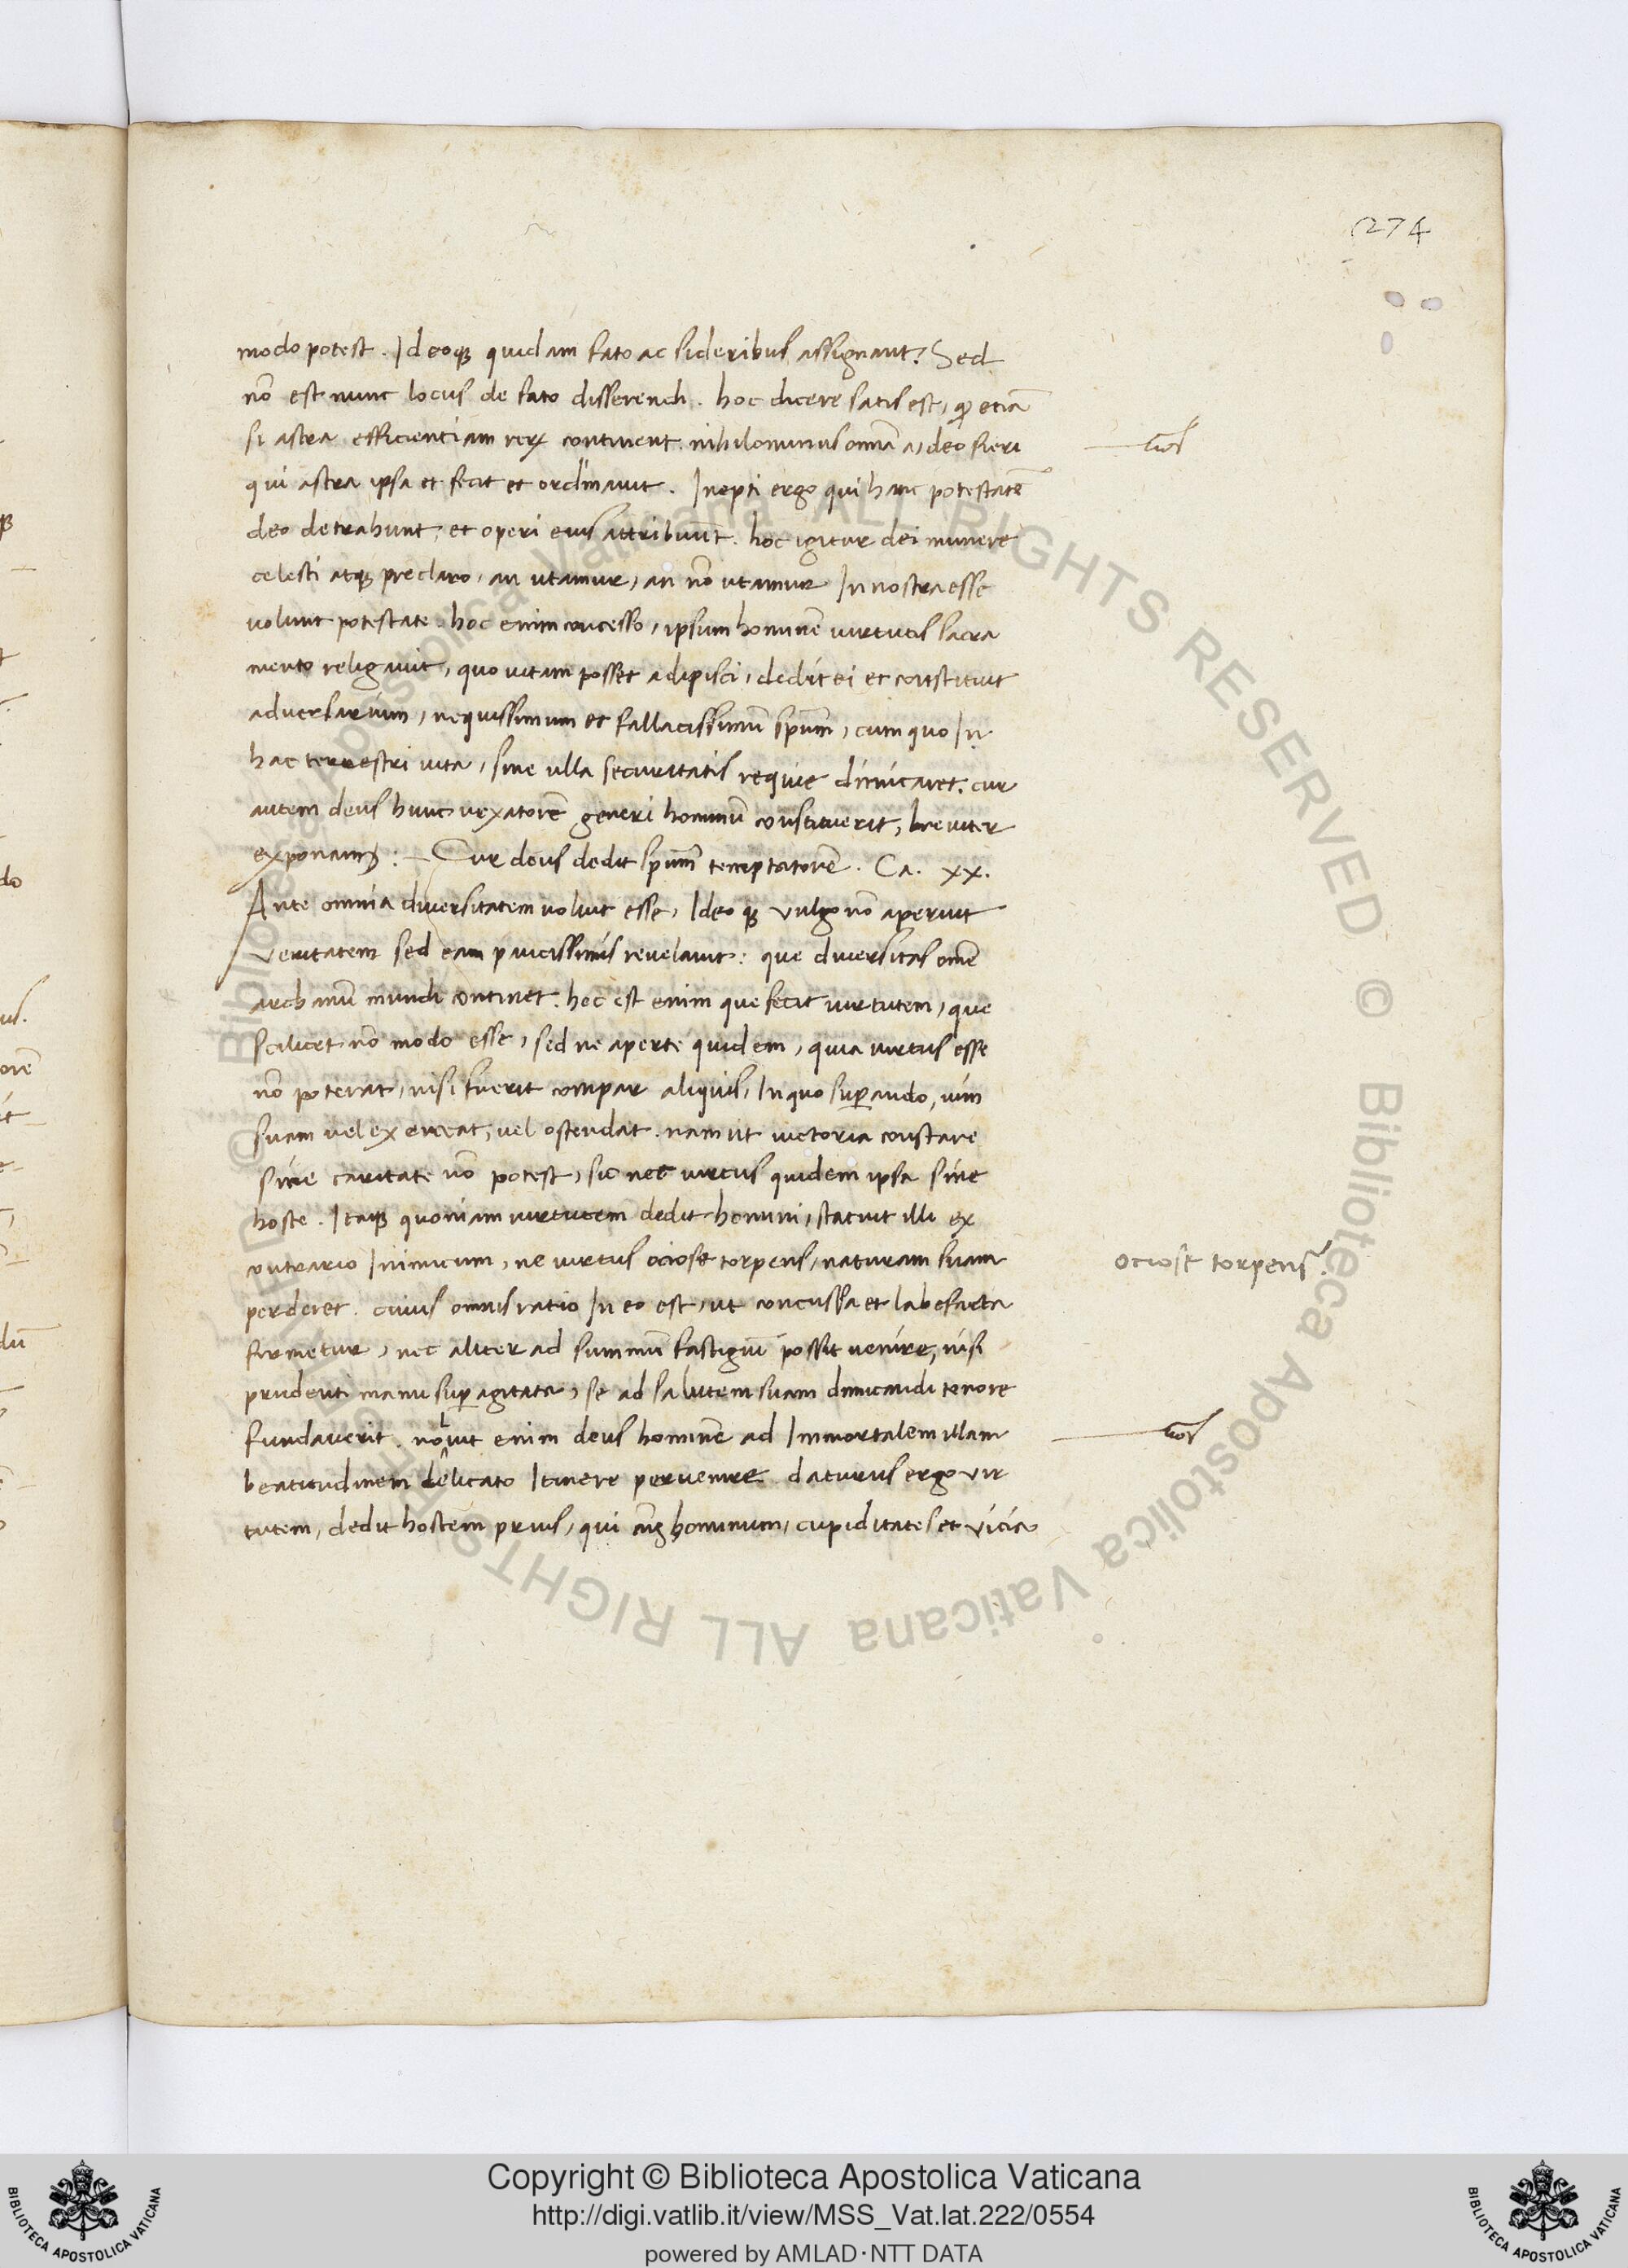 274
modo potest. Ideoqꝫ quidam fato ac sideribus assignant? Sed
nō est nunc locus de fato disserendi. hoc dicere satis est, ꝙ etiā
si astra efficientiam reꝝ continent. nihilominus omīa a deo fieri
noͬ
qui astra ipsa et fecit et ordinauit. Inepti ergo qui hanc potestatē
deo detrahunt, et operi eius attribuūt. hoc igitur dei munere
celesti atqꝫ preclaro, an utamur, an nō utamur In nostra esse
voluit potestate. hoc enim concesso, ipsum hominē uirtutis sacra
mento religauit, quo uitam posset adipisci, dedit ei et constituit
aduersarium, nequissimum et fallacissimū sp̄um, cum quo In
hac terrestri uita, sine ulla securitatis requie dimicaret. cur
autem deus hunc uexatorē generi hominū constituerit, breuiter
exponamꝰ: Cur deus dedit sp̄um temptatorē. Ca. xx.
Ante omnia diuersitatem voluit esse, Ideoqꝫ vulgo nō aperuit
veritatem sed eam paucissimis reuelauit: que diuersitas omē
archanū mundi continet. hoc est enim que fecit uirtutem, que
scilicet nō modo esse, sed ne aperte quidem, quia uirtus esse
nō poterat, nisi fuerit compar aliquis, In quo suꝑando, uim
suam uel exerceat, vel ostendat. nam ut uictoria constare
sine caritate nō potest, sic nec uirtus quidem ipsa sine
hoste. Itaqꝫ quoniam uirtutem dedit homini, statuit illi ex
contrario Inimicum, ne uirtus ociose torpens, naturam suam
ociose torpens.
perderet. cuius omnis ratio In eo est, ut concussa et labefacta
firmetur, nec aliter ad summū fastigiū possit uenire, nisi
prudenti manu suꝑ agitata, se ad salutem suam dimicandi tenore
fundauerit. noluit enim deus hominē ad Immortalem illam
noͬ
beatitudinem delicato Itinere peruenire. daturus ergo vir
tutem, dedit hostem prius, qui hominum, cupiditates et vicia
Copyright © Biblioteca Apostolica Vaticana
http://digi.vatlib.it/view/MSS_Vat.lat.222/0554
powered by AMLAD·NTT DATA
BIBLIOTECA APOSTOLICA VATICANA
BIBLIOTECA APOSTOLICA VATICANA
© Biblioteca Apostolica Vaticana ALL RIGHTS RESERVED © Biblioteca Apostolica Vaticana ALL RIGHTS RESERVED